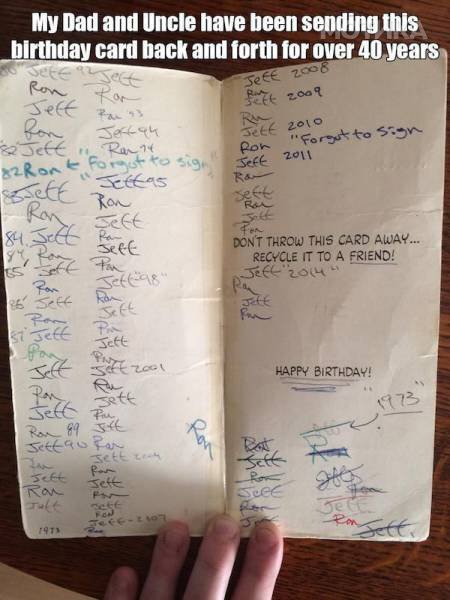 My Dad and Uncle have been sending this
birthday card back and forth for over 40 years
Jeff
Ron
Jeff
Ron
82 Jeff
82 Ron ← "Forgot to sign"
83 Jeff
Ron
84 Jeff
84 Ron
85 Jeff
Ron
86 Jeff
Ron
87 Jeff
Ron
Jeff
Ron
Jeff
Ron 89
Jeff 90
Ron
Jeff
Ron
Jeff
1973
92 Jeff
Ron
Ron 93
Jeff 94
Ron 94
Jeff 95
Ron
Jeff
Ron
Jeff
Ron
Jeff "98"
Ron
Jeff
Ron
Jeff
Ron
Jeff 2001
Ron
Jeff
Ron
Jeff
Ron
Jeff 2004
Ron
Jeff
Ron
Jeff
Ron
Jeff - 2007
Ron
Ron
Jeff 2008
Ron
Jeff 2009
Ron
Jeff 2010
Ron "Forgot to Sign
Jeff 2011
Ron
Jeff
Ron
Jeff
Ron
DON'T THROW THIS CARD AWAY...
RECYCLE IT TO A FRIEND!
Jeff "2014"
Ron
Jeff
Ron
HAPPY BIRTHDAY!
"1973"
Ron
Jeff
Ron
Jeff
Ron
Jeff
Ron
Jeff
Ron
Jeff
Ron
Jeff